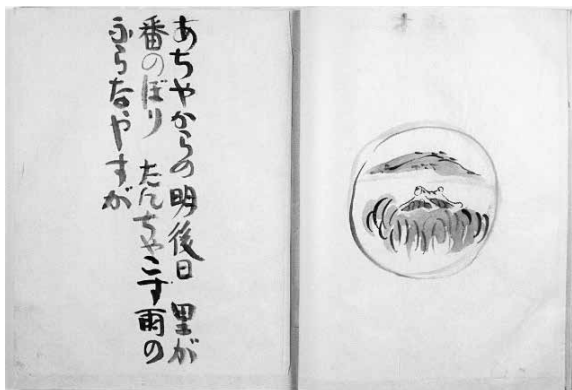 あちやからの明後日 里が
番のぼり たんちゃこす雨の
ふらなやすが